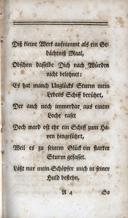 Diß kleine Werk aufnimmt als ein Ge-
dächtniß Maal,
Obschon dasselbe Dich nach Würden
nicht belehnet:
Es hat manch Unglücks Sturm mein
Lebens Schiff berühret,
Der auch noch immerdar aus einem
Loche raset
Doch ward oft ihr ein Schiff zum Ha-
ven hingeführet,
Weil es zu seinem Glück ein starker
Sturm gefasset.
Läßt nur mein Schöpfer mich in seiner
Huld bestehn,
A 4
So